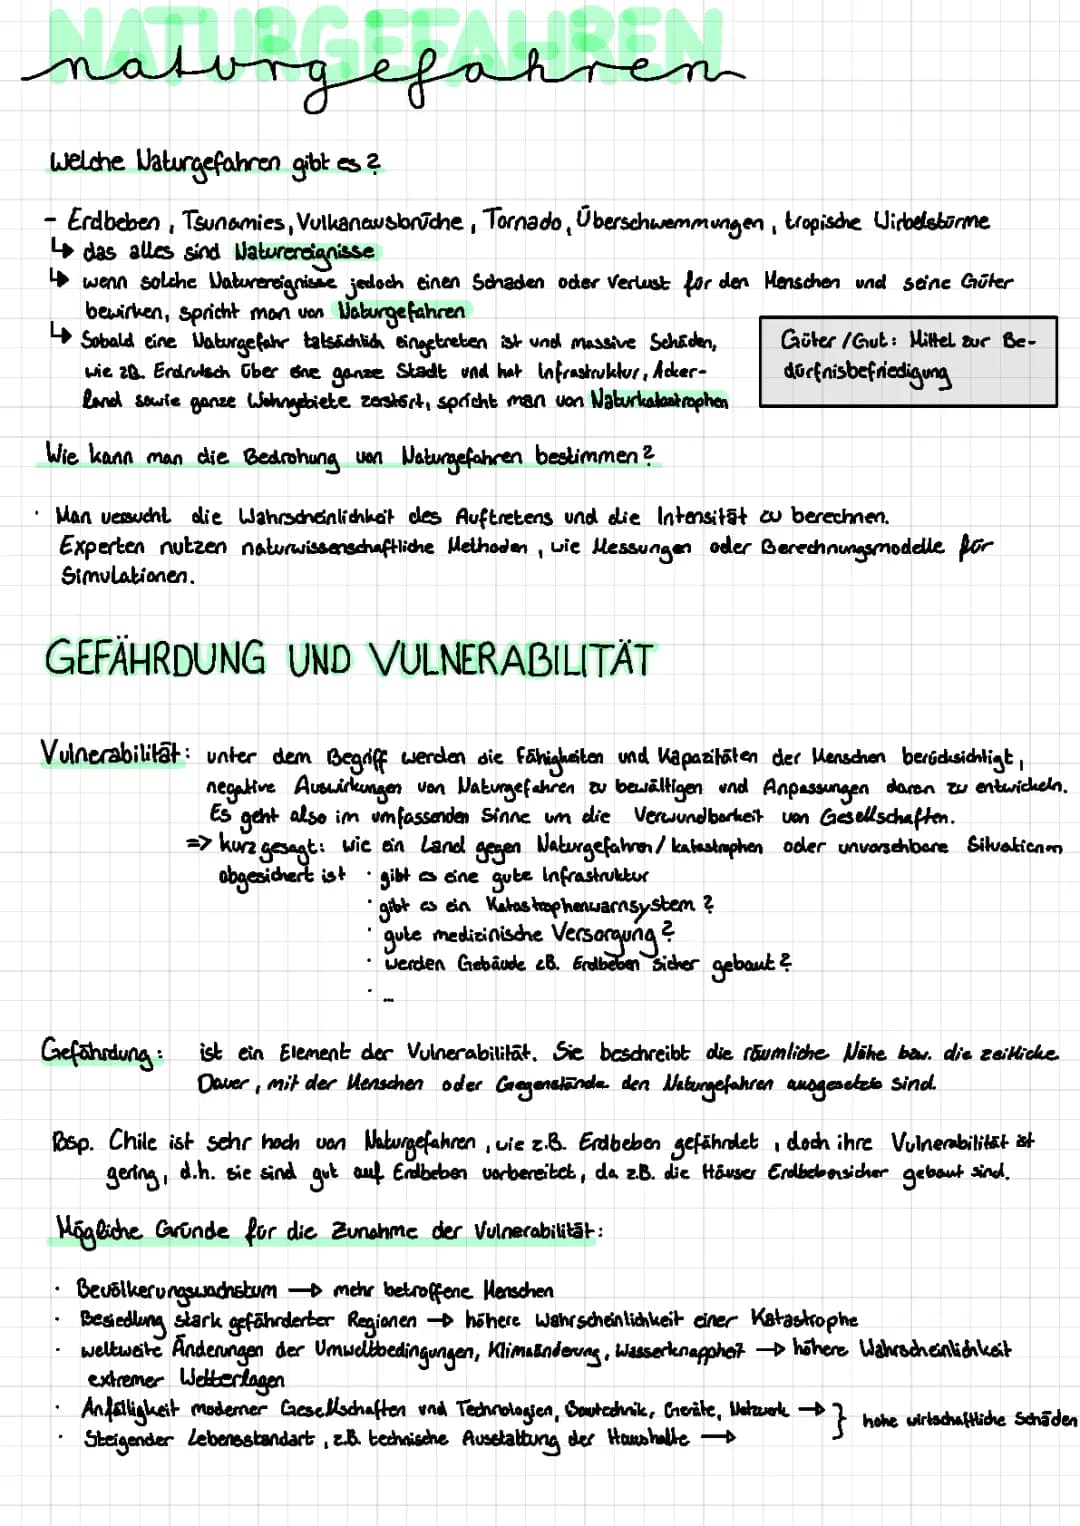 NATURGEFAHREN
naturgefahren
Welche Naturgefahren gibt es?
- Erdbeben, Tsunamies, Vulkanausbrüche, Tornado, Überschwemmungen, tropische Wirbelstürme
↳ das alles sind Naturereignisse
↳ wenn solche Naturereignisse jedoch einen Schaden oder Verlust für den Menschen und seine Güter
bewirken, spricht man von Naturgefahren
↳ Sobald eine Naturgefahr tatsächlich eingetreten ist und massive Schäden,
wie zB. Erdrutsch über eine ganze Stadt und hat Infrastruktur, Acker-
land sowie ganze Wohngebiete zerstört, spricht man von Naturkatastrophen
Güter/Gut: Mittel zur Be-
dürfnisbefriedigung
Wie kann man die Bedrohung von Naturgefahren bestimmen?
· Man versucht die Wahrscheinlichkeit des Auftretens und die Intensität zu berechnen.
Experten nutzen naturwissenschaftliche Methoden, wie Messungen oder Berechnungsmodelle für
Simulationen.
GEFÄHRDUNG UND VULNERABILITÄT
Vulnerabilität: unter dem Begriff werden die Fähigkeiten und Kapazitäten der Menschen berücksichtigt,
negative Auswirkungen von Naturgefahren zu bewältigen und Anpassungen daran zu entwickeln.
Es geht also im umfassenden Sinne um die Verwundbarkeit von Gesellschaften.
=> kurz gesagt: wie ein Land gegen Naturgefahren/katastrophen oder unvorsehbare Situationen
abgesichert ist · gibt es eine gute Infrastruktur
· gibt es ein Katastrophenwarnsystem?
· gute medizinische Versorgung?
· werden Gebäude zB. Erdbeben sicher gebaut?
· ...
Gefährdung: ist ein Element der Vulnerabilität. Sie beschreibt die räumliche Nähe bzw. die zeitliche
Dauer, mit der Menschen oder Gegenstände den Naturgefahren ausgesetzt sind.
Bsp. Chile ist sehr hoch von Naturgefahren, wie z.B. Erdbeben gefährdet, doch ihre Vulnerabilität ist
gering, d.h. sie sind gut auf Erdbeben vorbereitet, da zB. die Häuser Erdbebensicher gebaut sind.
Mögliche Gründe für die Zunahme der Vulnerabilität:
· Bevölkerungswachstum → mehr betroffene Menschen
· Besiedlung stark gefährderter Regionen → höhere Wahrscheinlichkeit einer Katastrophe
· weltweite Änderungen der Umweltbedingungen, Klimaänderung, Wasserknappheit → höhere Wahrscheinlichkeit
extremer Wetterlagen
· Anfälligkeit moderner Gesellschaften und Technologien, Bautechnik, Geräte, Netzwerk → } hohe wirtschaftliche Schäden
· Steigender Lebensstandart, z.B. technische Ausstattung der Haushalte →